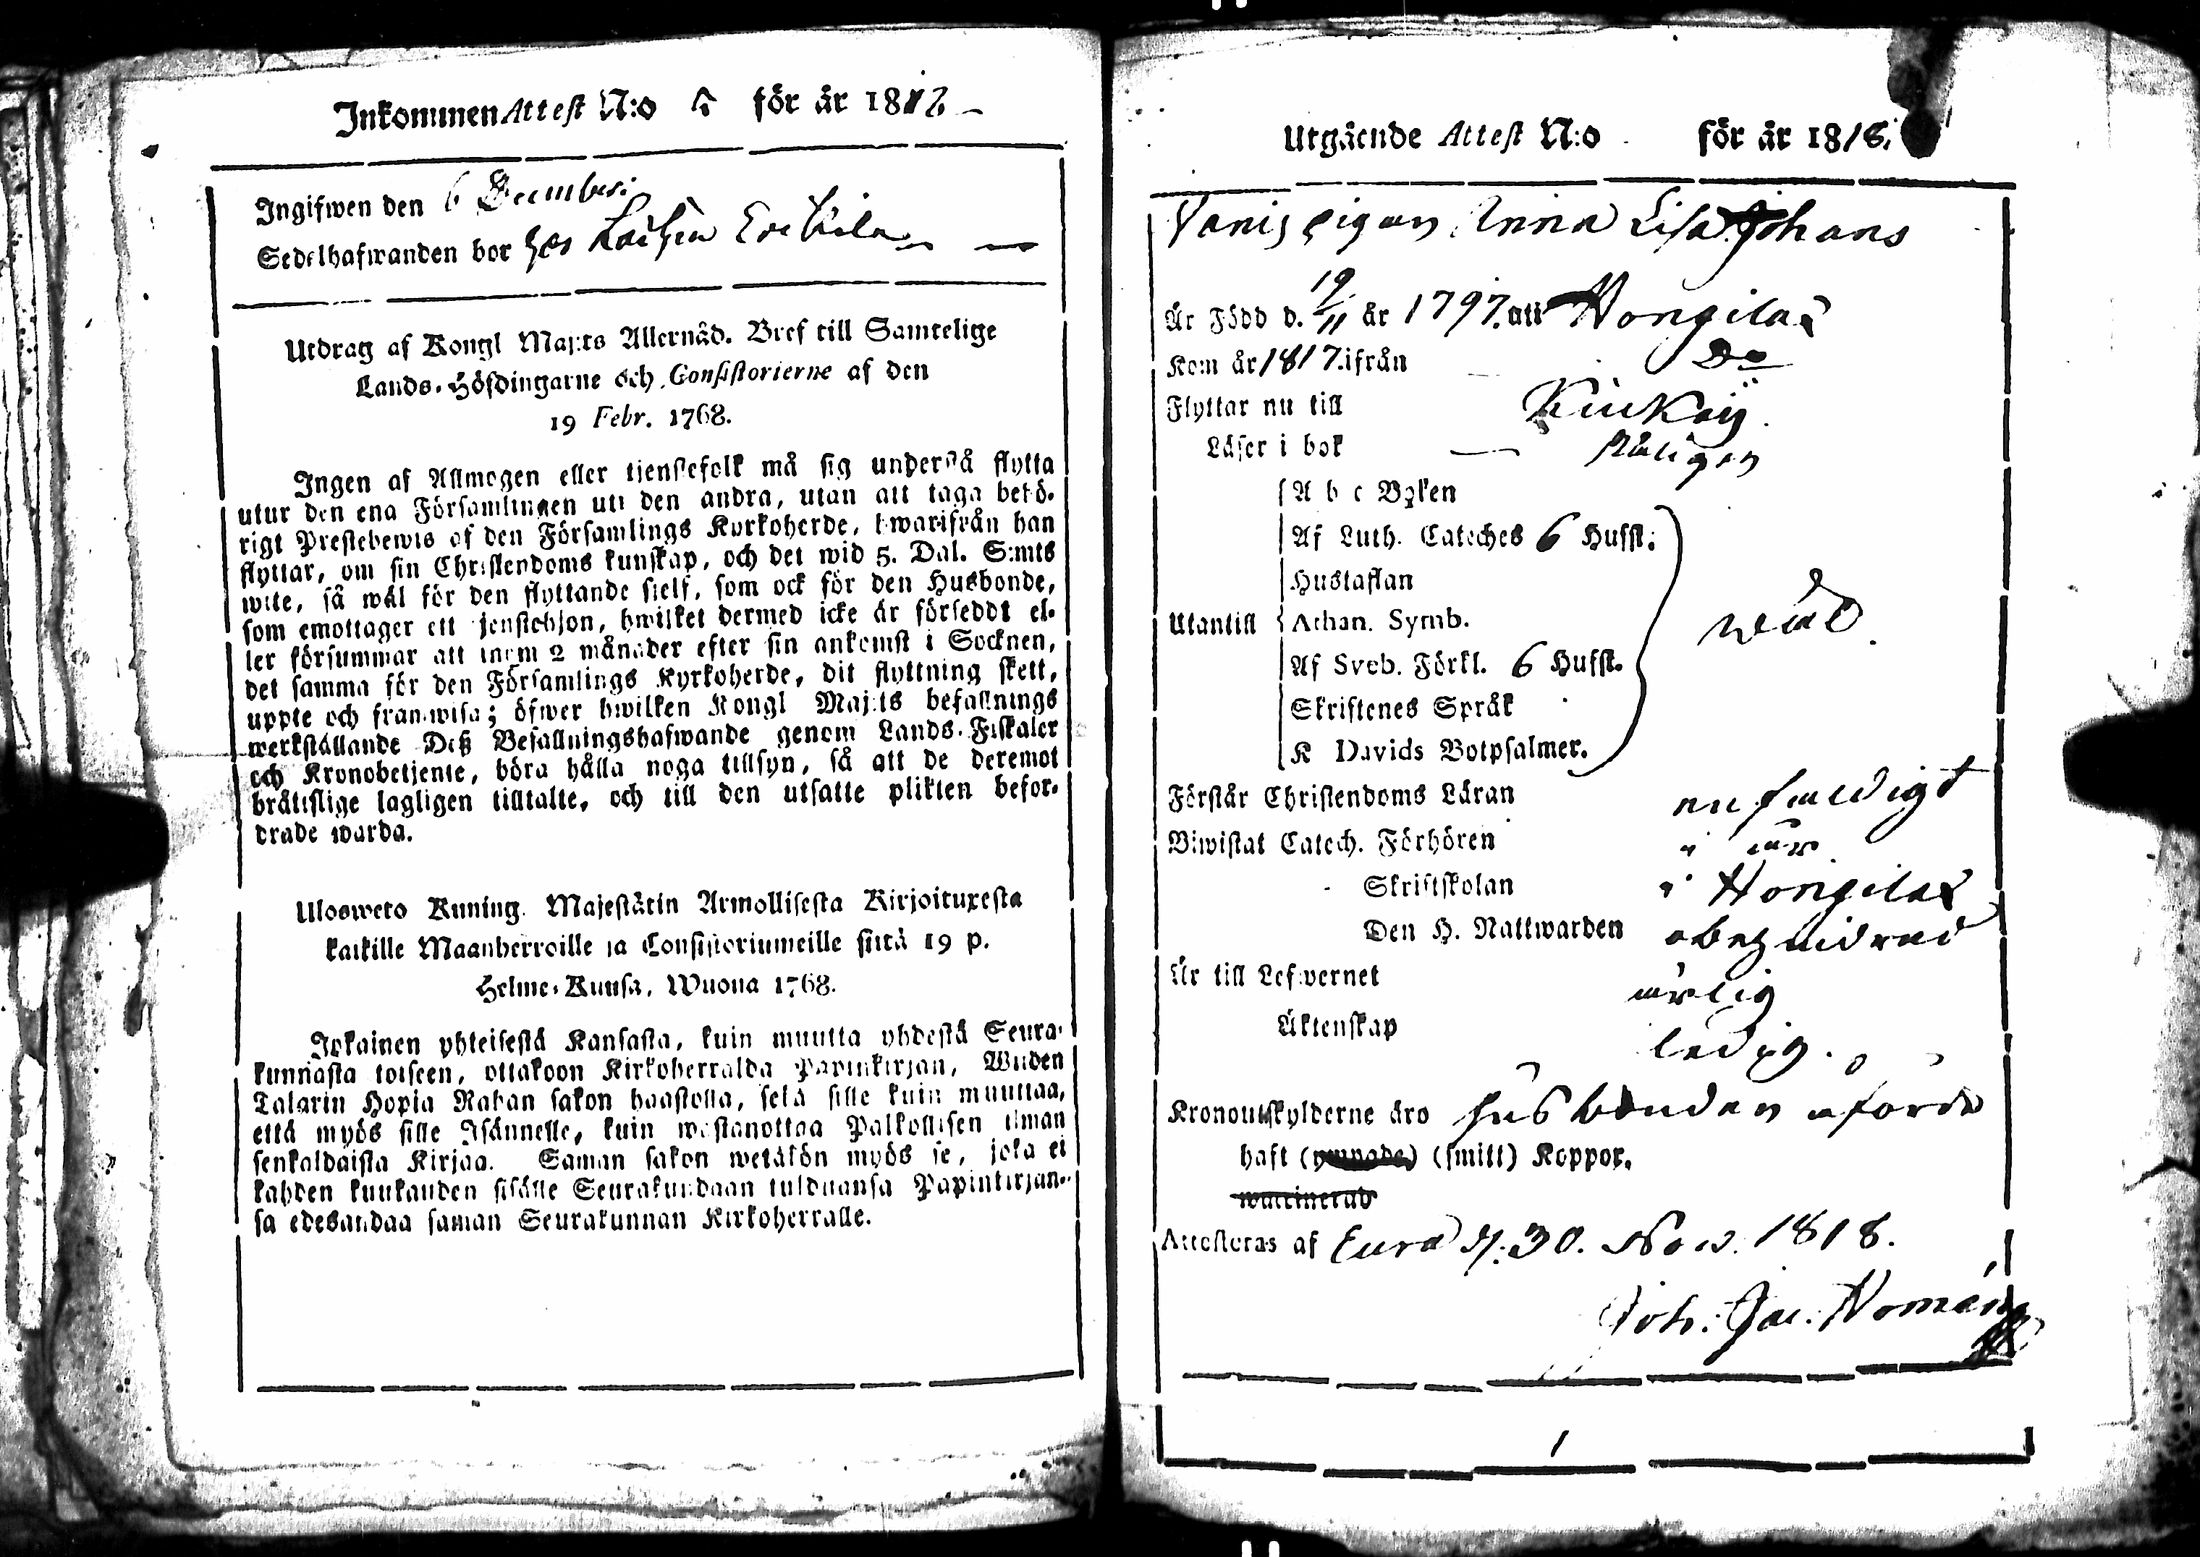 Inkommen Attest N:o 5 för år 1818
Ingifwen den 6 Decembr:
Sedelhafwanden bor hos Erkkilä
Utdrag af Kongl Maj:ts Allernåd. Bref till Samtelige
Lands-Höfdingarne och Consistorierne af den
19 Febr. 1768.
Ingen af Allmogen eller tjenstefolk må sig understå flytta
utur den ena Församlingen uti den andra, utan att taga behö-
rigt Prestebewis af den Församlings Kyrkoherde, hwarifrån han
flyttar, om sin Christendoms kunskap, och det wid 5. Dal. S:mts
wite, så wäl för den flyttande sielf, som ock för den Husbonde,
som emottager ett tjenstehjon, hwilket dermed icke är förseddt el-
ler försummar att inom 2 månader efter sin ankomst i Socknen,
det samma för den Församlings Kyrkoherde, dit flyttning skett,
uppte och framwisa; öfwer hwilken Kongl Maj:ts befallnings
werkställande Deß Befallningshafwande genom Lands-Fiskaler
och Kronobetjente, böra hålla noga tillsyn, så att de deremot
bråttslige lagligen tilltalte, och till den utsatte plikten befor-
drade warda.
Ulosweto Kuning. Majestätin Armollisesta Kirjoituxesta
kaikille Maanherroille ja Consistoriumeille siitä 19 p.
Helme-Kuusa, Wuona 1768.
Jokainen yhteisestä Kansasta, kuin muutta yhdestä Seura-
kunnasta toiseen, ottakoon Kirkoherralda Papinkirjan, Wiiden
Talarin Hopia Rahan sakon haastolla, sekä sille kuin muuttaa,
että myös sille Isännelle, kuin wastanottaa Palkollisen ilman
senkaldaista Kirjaa. Saman sakon wetäkön myös se, joka ei
kahden kuukauden sisälle Seurakundaan tulduansa Papinkirjan-
sa edesandaa saman Seurakunnan Kirkoherralle.
Utgående Attest N:o för år 1818.
pigan Anna Lisa Johans
Är Född d. 19/11 år 1797. att Hongilax
Kom år 1817. ifrån D:o
Flyttar nu till Kiukais
Läser i bok
Utantill
A b c Boken
Af Luth. Cateches 6 Hufst:
Hustaflan
Athan. Symb.
Af Sveb. Förkl. 6 Hufst.
Skriftenes Språk
K Davids Botpsalmer.
wäl
Förstår Christendoms Läran enfaldigt
Biwistat Catech. Förhören i år
Skriftskolan i Hongilax
Den H. Nattwarden obehindrad
Är till Lefwernet ärlig
Äktenskap ledig.
Kronoutskylderne äro husbonden påförde
haft (ympade) (smitt) Koppor.
waccinerad
Attesteras af Eura d. 30. Nov. 1818.
Joh. Jac. Nomén
1